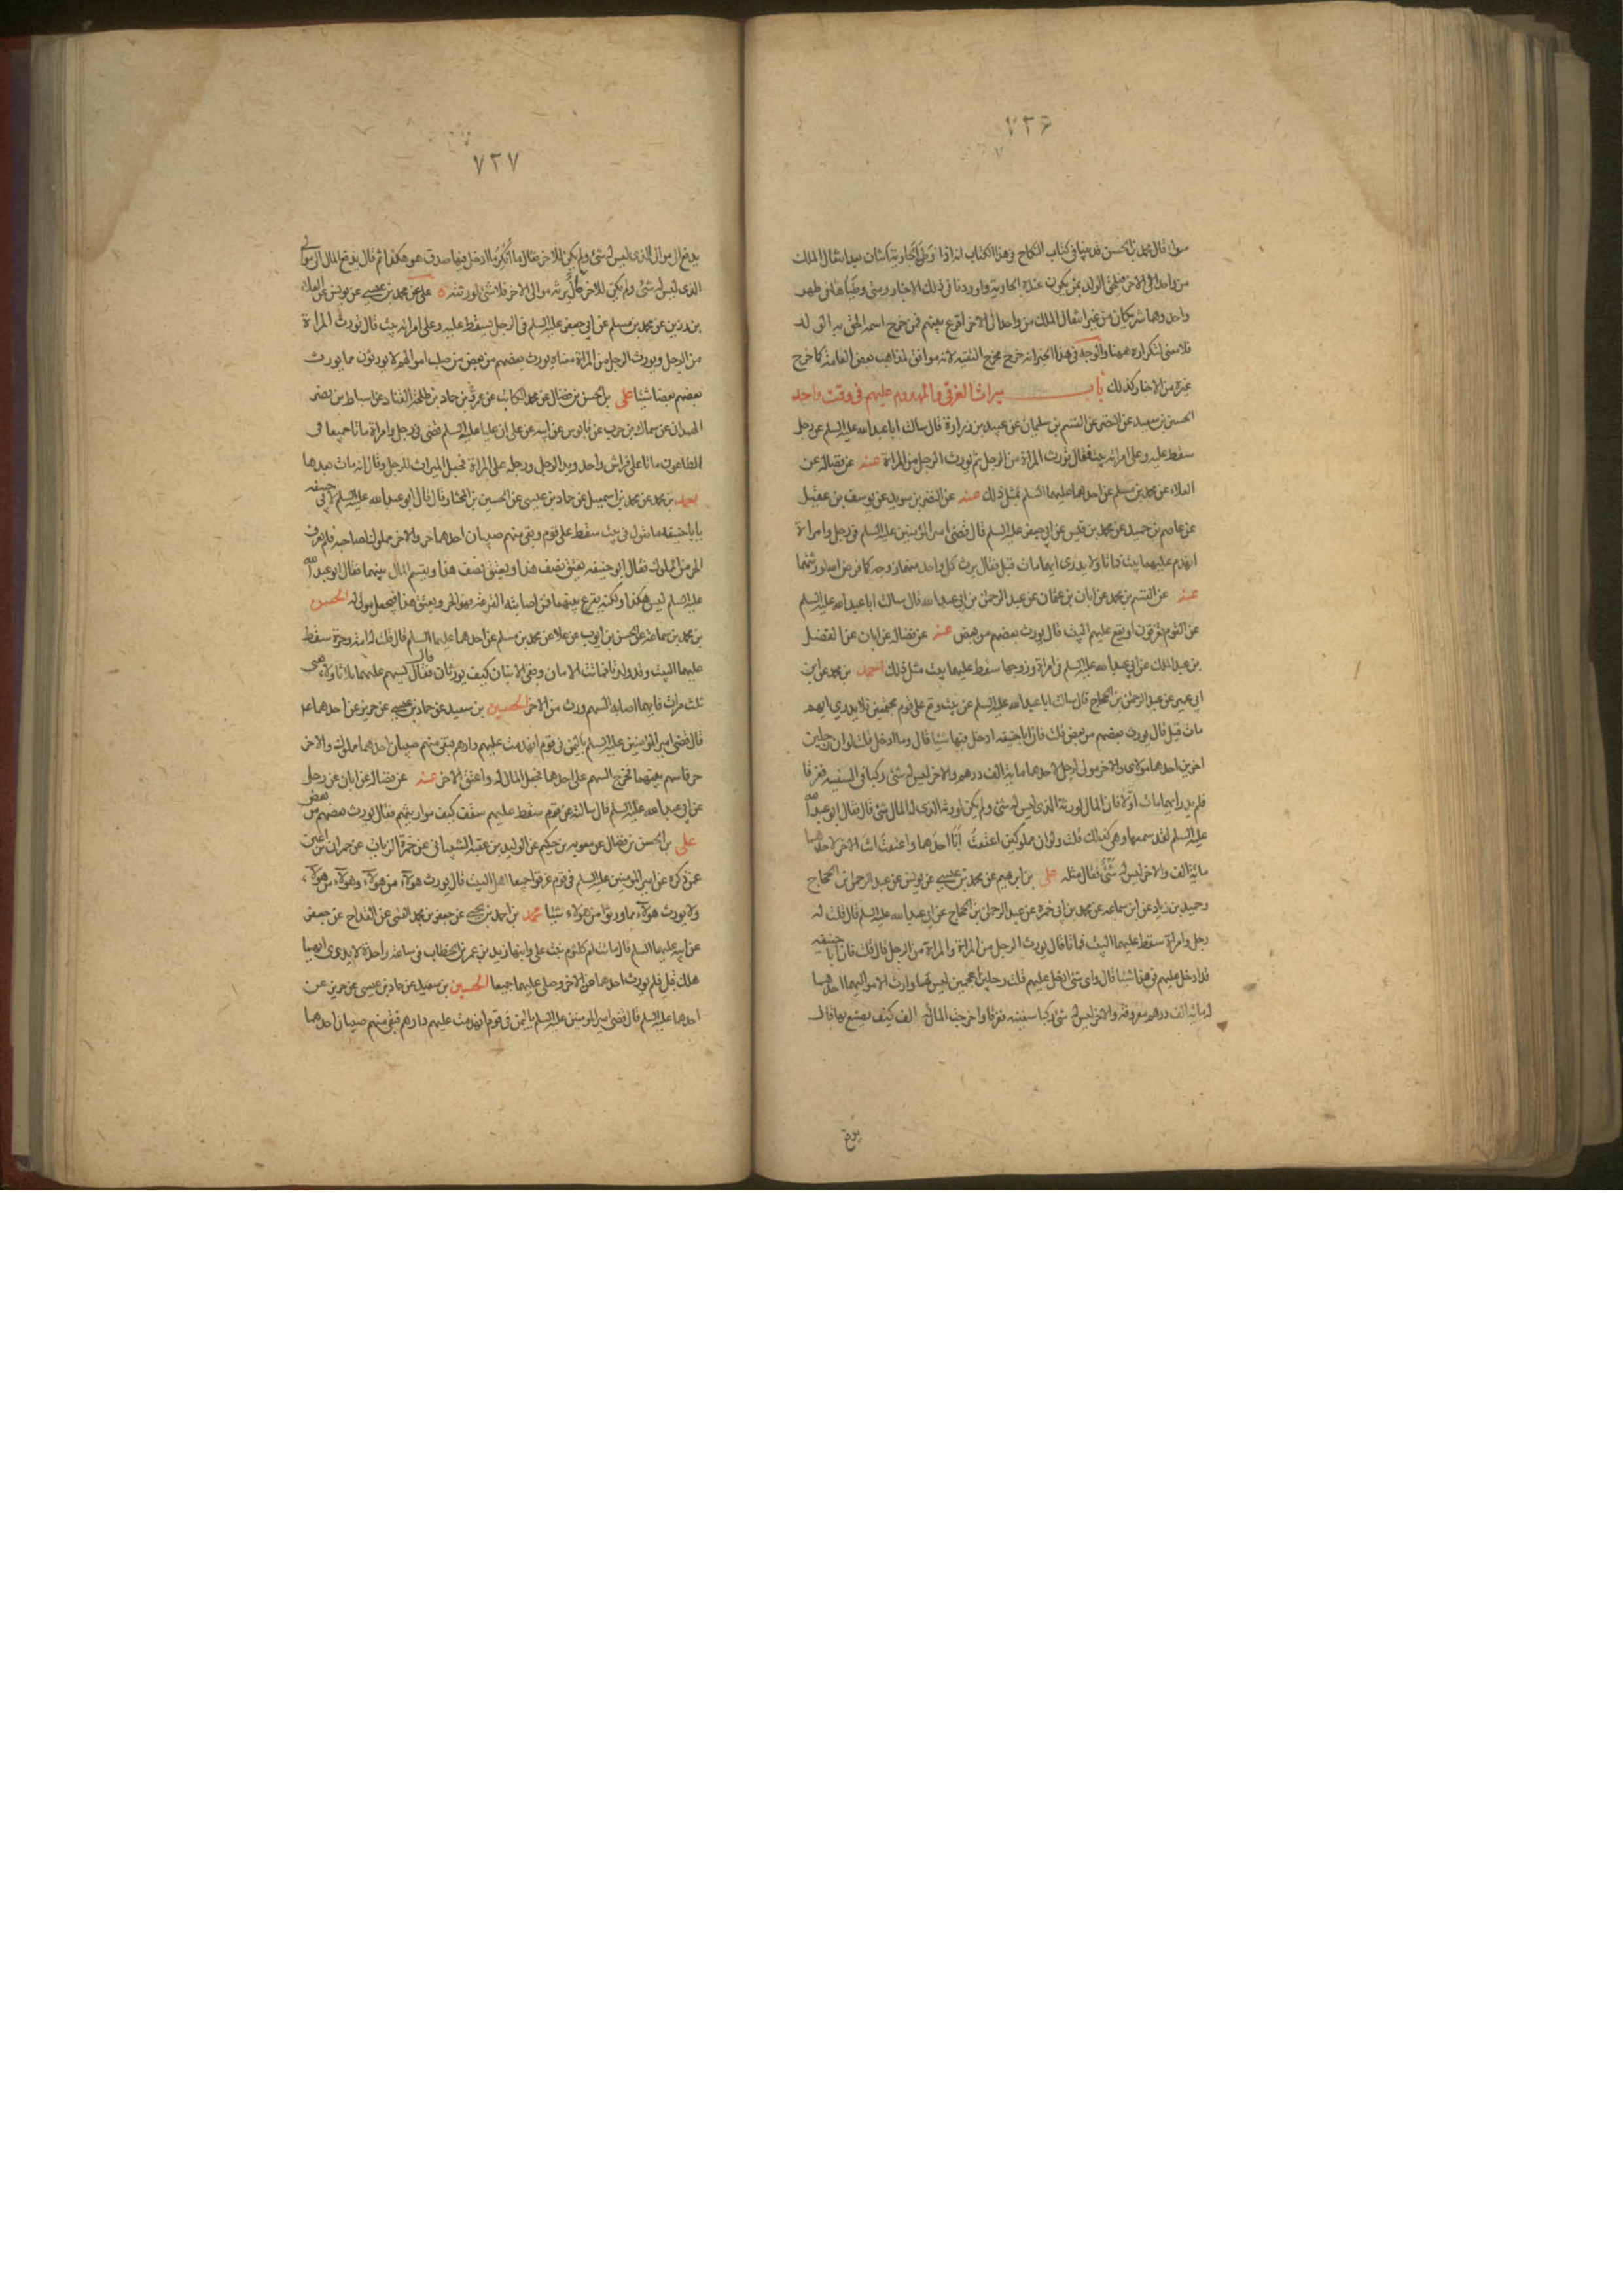 ٧٣۶
سواء قال محمد بن الحسن قد بينا في كتاب النكاح وهذا الكتاب انه اذا وطئ الجارية بعد انتقال الملك
من واحد الى الاخر فيلحق الولد بمن يكون عنده الجارية واوردنا في ذلك الاخبار ومتى وطياها في طهر
واحد وهما شريكان من غير انتقال الملك من واحد الى الاخر اقرع بينهم فمن خرج اسمه الحق به الولد
فلا معنى لتكراره ههنا والوجه في هذا الخبر انه خرج مخرج التقية لانه موافق لمذاهب بعض العامة كما خرج
غيره من الاخبار كذلك باب ميراث الغرقى والمهدوم عليهم في وقت واحد
الحسين بن سعيد عن النضر عن القسم بن سليمان عن عبيد بن زرارة قال سالت ابا عبد الله عليه السلم عن رجل
سقط عليه وعلى امراته بيت فقال تورث المراة من الرجل ثم يورث الرجل من المراة عنه عن فضالة عن
العلاء عن محمد بن مسلم عن احدهما عليهما السلم مثل ذلك عنه عن النضر بن سويد عن يوسف بن عقيل
عن عاصم بن حميد عن محمد بن قيس عن ابي جعفر عليه السلم قال قضى امير المؤمنين عليه السلم في رجل وامراة
انهدم عليهما بيت فماتا ولا يدرى ايهما مات قبل فقال يرث كل واحد منهما زوجه كما فرض الله لورثتهما
عنه عن القسم بن محمد عن ابان بن عثمان عن عبد الرحمن بن ابي عبد الله قال سالت ابا عبد الله عليه السلم
عن القوم يغرقون او يقع عليهم البيت قال يورث بعضهم من بعض عنه عن فضالة عن ابان عن الفضل
بن عبد الملك عن ابي عبد الله عليه السلم في امراة وزوجها سقط عليهما بيت مثل ذلك احمد بن محمد عن ابن
ابي عمير عن عبد الرحمن بن الحجاج قال سالت ابا عبد الله عليه السلم عن بيت وقع على قوم مجتمعين فلا يدرى ايهم
مات قبل قال يورث بعضهم من بعض قلت فان ابا حنيفه ادخل فيها شيئا قال وما ادخل قلت لو ان رجلين
اخوين احدهما مولاى والاخر مولى لرجل لاحدهما ماية الف درهم والاخر ليس له شئ ركبا في السفينه فغرقا
فلم يدر ايهما مات اولا فان المال لورثة الذى ليس له شئ ولم يكن لورثة الذى له المال شئ قال فقال ابو عبد الله
عليه السلم لقد سمعها وهي كذلك قلت ولو ان مملوكين اعتقت انا احدهما واعتقت انت الاخر لاحدهما
مائة الف والاخر ليس له شئ فقال مثله على بن ابرهيم عن محمد بن عيسى عن يونس عن عبد الرحمن بن الحجاج
وحميد بن زياد عن ابن سماعه عن محمد بن ابي حمزه عن عبد الرحمن بن الحجاج عن ابي عبد الله عليه السلم قال قلت له
رجل وامراة سقط عليهما البيت فماتا قال يورث الرجل من المراة والمراة من الرجل قال قلت فان ابا حنيفه
قد ادخل عليهم في هذا شيئا قال واى شئ ادخل عليهم قلت رجلين اعجميين ليس لهما وارث الا مواليهما احدهما
له مائة الف درهم معروفة والاخر ليس له شئ ركبا سفينه فغرقا واخرجت المائة الف كيف يصنع بها قال
يدفع
٧٣٧
يدفع الى موالى الذى ليس له شئ ولم يكن للاخر فقال ما انكر ما ادخل فيها صدق هو هكذا ثم قال يدفع المال الى موالى
الذى ليس له شئ ولم يكن للاخر مال يرثه موالى الاخر فلا شئ لورثته على عن محمد بن عيسى عن يونس عن العلاء
بن رزين عن محمد بن مسلم عن ابي جعفر عليه السلم في الرجل يسقط عليه وعلى امراته بيت قال تورث المراة
من الرجل ويورث الرجل من المراة معناه يورث بعضهم من بعض من صلب اموالهم لا يورثون مما يورث
بعضهم بعضا شيئا على بن الحسن بن فضال عن محمد الكاتب عن عمرو بن حماد بن طلحة القناد عن اسباط بن نصر
الهمدانى عن سماك بن حرب عن قابوس عن ابيه عن على ان عليا عليه السلم قضى في رجل وامراة ماتا جميعا في
الطاعون ماتا على فراش واحد ويد الرجل ورجله على المراة فجعل الميراث للرجل وقال انه مات بعدها
احمد بن محمد عن محمد بن اسمعيل عن حماد بن عيسى عن الحسين بن المختار قال قال ابو عبد الله عليه السلم لابي حنيفه
يا با حنيفه ما تقول في بيت سقط على قوم وبقى منهم صبيان احدهما حر والاخر مملوك لصاحبه فلم يعرف
الحر من المملوك فقال ابو حنيفه يعتق نصف هذا ويعتق نصف هذا ويقسم المال بينهما فقال ابو عبد الله
عليه السلم ليس هكذا ولكنه يقرع بينهما فمن اصابته القرعة فهو الحر ويعتق هذا فيجعل مولى له الحسن
بن محمد بن سماعة عن الحسن بن ايوب عن علا عن محمد بن مسلم عن احدهما عليهما السلم قال قلت له امة وحرة سقط
عليهما البيت وقد ولدتا فماتت الامان وبقى الابنان كيف يورثان قال فقال يسهم عليهما ثلاثا ولاء يعنى
ثلث مرات فايهما اصابه السهم ورث من الاخر الحسين بن سعيد عن حماد بن عيسى عن حريز عن احدهما ع
قال قضى امير المؤمنين عليه السلم باليمن في قوم انهدمت عليهم دارهم فبقى منهم صبيان احدهما مملوك والاخر
حر فاسهم بينهما فخرج السهم على احدهما فجعل المال له واعتق الاخر عنه عن فضالة عن ابان عن رجل
عن ابي عبد الله عليه السلم قال سالته عن قوم سقط عليهم سقف كيف مواريثهم فقال يورث بعضهم من بعض
على بن الحسن بن فضال عن معويه بن حكيم عن الوليد بن عقبة الشيبانى عن حمزة الزيات عن حمران بن اعين
عمن ذكره عن امير المؤمنين عليه السلم في قوم غرقوا جميعا اهل البيت قال يورث هولاء من هولاء وهولاء من هولاء
ولا يورث هولاء مما ورثوا من هولاء شيئا محمد بن احمد بن يحيى عن جعفر بن محمد القمى عن القداح عن جعفر
عن ابيه عليهما السلم قال ماتت ام كلثوم بنت على وابنها زيد بن عمر بن الخطاب في ساعة واحدة لا يدرى ايهما
هلك قبل فلم يورث احدهما من الاخر وصلى عليهما جميعا الحسين بن سعيد عن حماد بن عيسى عن حريز عن
احدهما عليه السلم قال قضى امير المؤمنين عليه السلم باليمن في قوم انهدمت عليهم دارهم فبقى منهم صبيان احدهما